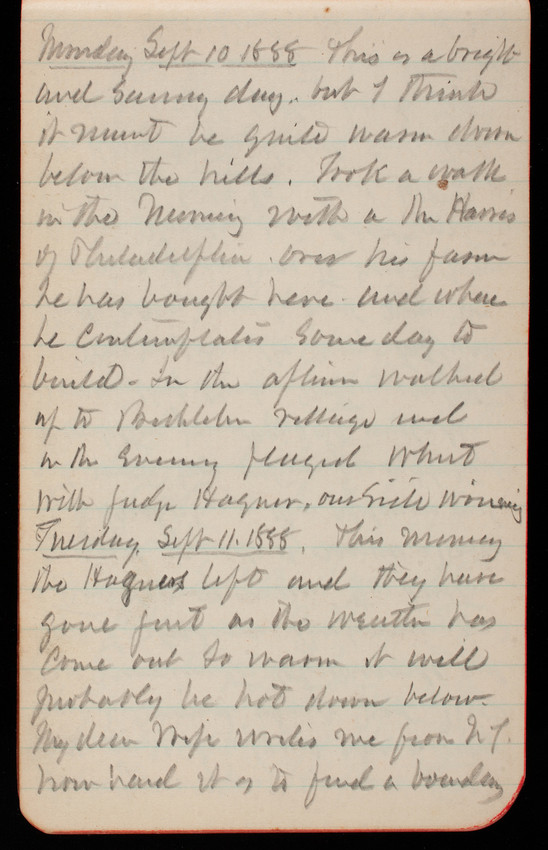 Monday Sept 10 1888 This is a bright
and Sunny day. but I think
it must be quite warm down
below the hills. Took a walk
in the Morning with a Mr Harris
of Philadelphia over his farm
he has bought here and where
he Contemplates Some day to
build. In the aftern walked
up to Bethlehem village and
in the Evening played Whist
with Judge Hagner, our Side winning
Tuesday, Sept 11. 1888. This Morning
the Hagners left and they have
gone just as the weather has
Come out So warm it will
probably be hot down below.
My dear Wife writes me from N.Y.
how hard it is to find a boarding